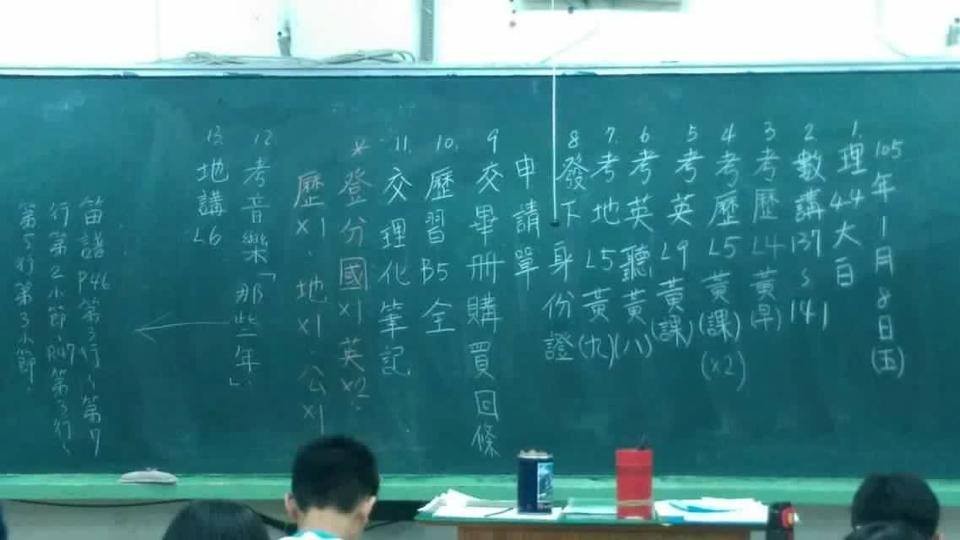 105年1月8日(五)
1. 理44大白
2. 數講137~141
3. 考歷L4黃(早)
4. 考歷L5黃(課)(x2)
5. 考英L9黃(課)
6. 考英聽黃(八)
7. 考地L5黃(九)
8. 發下身份證
申請單
9. 交畢冊購買回條
10. 歷習B5全
11. 交理化筆記
* 登分國x1英x2.
歷x1.地x1.公x1
12. 考音樂「那些年」
13. 地講L6
笛譜P46第3行~第7
行第2小節.P47第3行~
第5行第3小節.